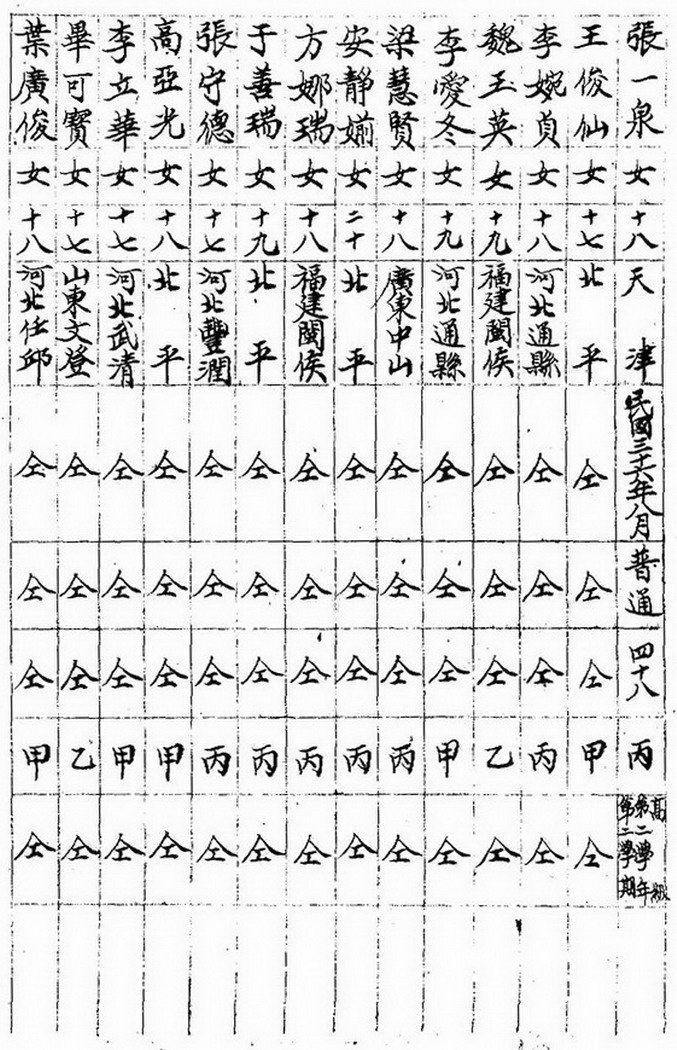 張一泉 女 十八 天津 民國三十六年八月 普通 四十八 丙 高級第二學年第二學期
王俊仙 女 十七 北平 仝 仝 仝 甲 仝
李婉貞 女 十八 河北通縣 仝 仝 仝 丙 仝
魏玉英 女 十九 福建閩侯 仝 仝 仝 乙 仝
李愛冬 女 十九 河北通縣 仝 仝 仝 甲 仝
梁慧賢 女 十八 廣東中山 仝 仝 仝 丙 仝
安靜媊 女 二十 北平 仝 仝 仝 丙 仝
方娜瑞 女 十八 福建閩侯 仝 仝 仝 丙 仝
于善瑞 女 十九 北平 仝 仝 仝 丙 仝
張守德 女 十七 河北豐潤 仝 仝 仝 丙 仝
高亞光 女 十八 北平 仝 仝 仝 甲 仝
李立華 女 十七 河北武清 仝 仝 仝 甲 仝
畢可寶 女 十七 山東文登 仝 仝 仝 乙 仝
葉廣俊 女 十八 河北任邱 仝 仝 仝 甲 仝